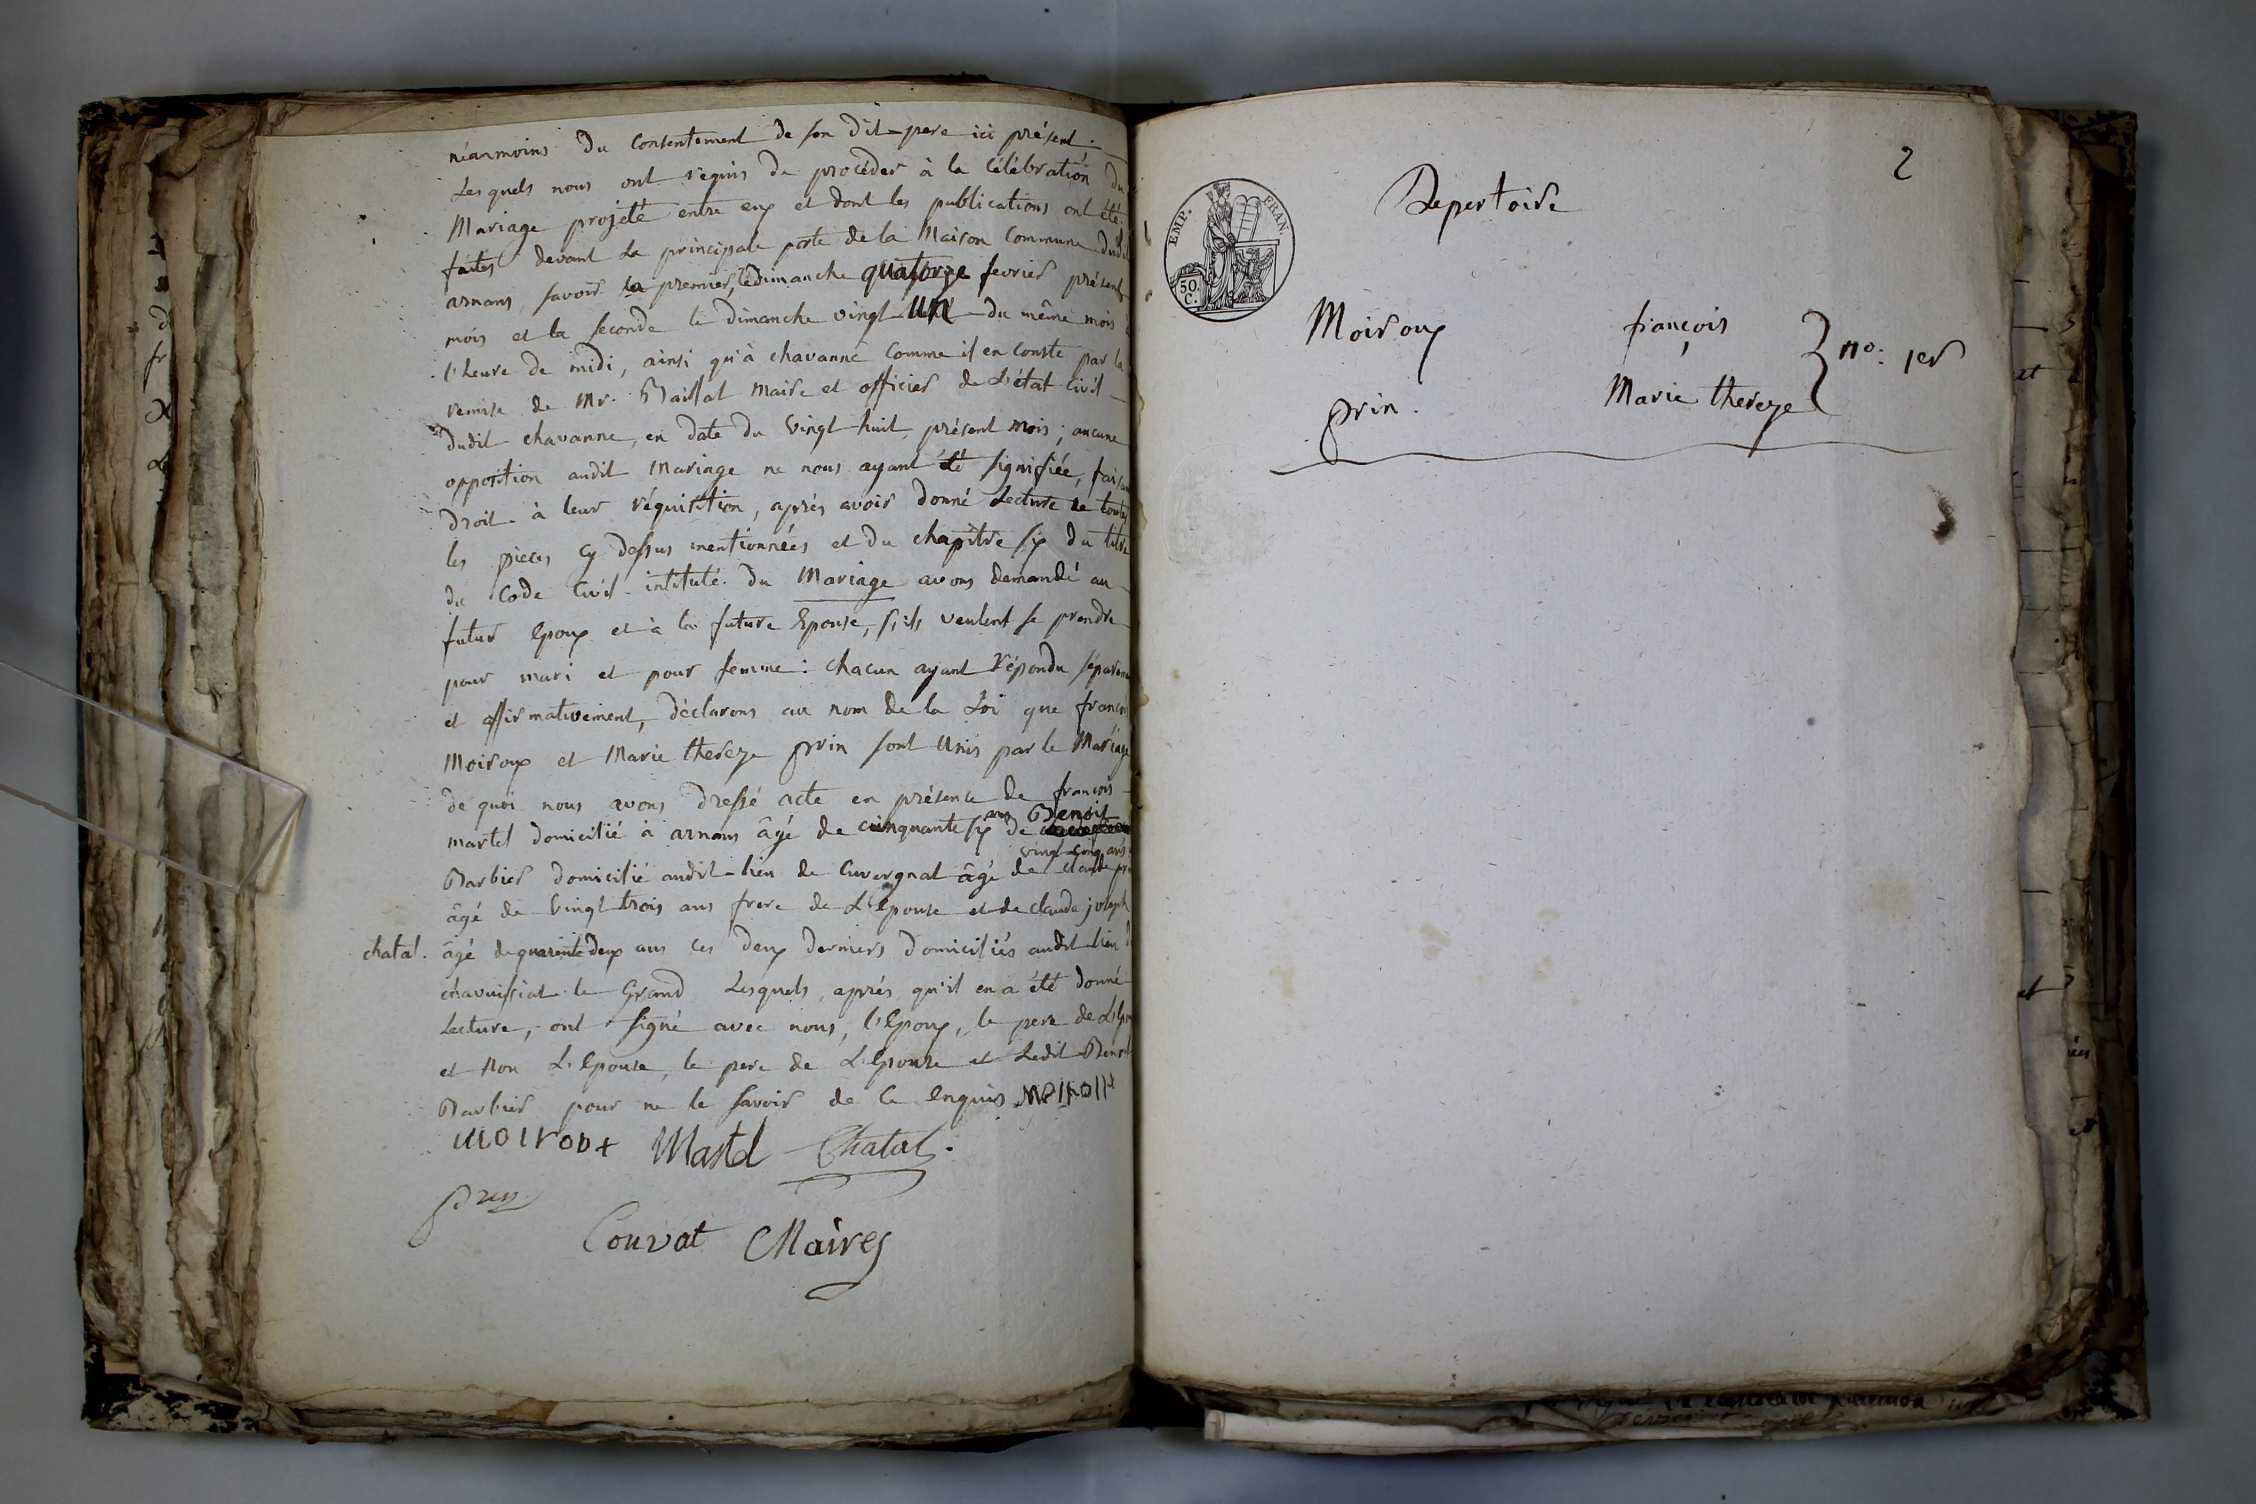 néanmoins du Consentement de son dit pere ici présent.
Lesquels nous ont requis de procéder à la Célébration du
Mariage projeté entre eux et dont les publications ont été
faites devant La principale porte de la Maison Commune dudit
arnans, savoir la premier, le dimanche quatorze fevrier présent
mois et la seconde le dimanche vingt un du même mois
l'heure de midi, ainsi qu'à chavanne Comme il en conste par la
remise de Mr. Maire et officier de L'état Civil
dudit chavanne, en date du Vingt huit présent mois; aucune
opposition audit Mariage ne nous ayant été signifiée, faisant
droit à leur réquisition, après avoir donné Lecture de toutes
les pieces cy dessus mentionnées et du chapitre six du titre
du Code Civil intitulé du Mariage avons demandé au
futur Epoux et à la future Epouse, s'ils veulent se prendre
pour mari et pour femme: chacun ayant répondu séparem
et affirmativement, déclarons au nom de la Loi que françois
Moiroux et Marie thereze prin sont Unis par le Mariage
de quoi nous avons dressé acte en présence de françois
martel domicilié à arnans âgé de cinquante six ans de Benoit
Barbier domicilié audit lieu de Cuvergnat âgé de vingt cinq ans claude pr
âgé de Vingt trois ans frere de L'Epouse et de claude joseph
chatal. âgé de quarante deux ans ces deux derniers domiciliés audit lieu d
chavuissiat le Grand Lesquels, après qu'il en a été donné
Lecture, ont signé avec nous, l'Epoux, le pere de L'Epo
et Non L'Epouse, le pere de L'Epouse et Ledit Benoit
Barbier pour ne le savoir de ce Enquis Moiroux
moiroux Martel Chatal.
prin
Couvat Maires
2
Repertoire
EMP. FRAN.
50. C.
Moiroux françois
nº: 1er
prin. Marie thereze